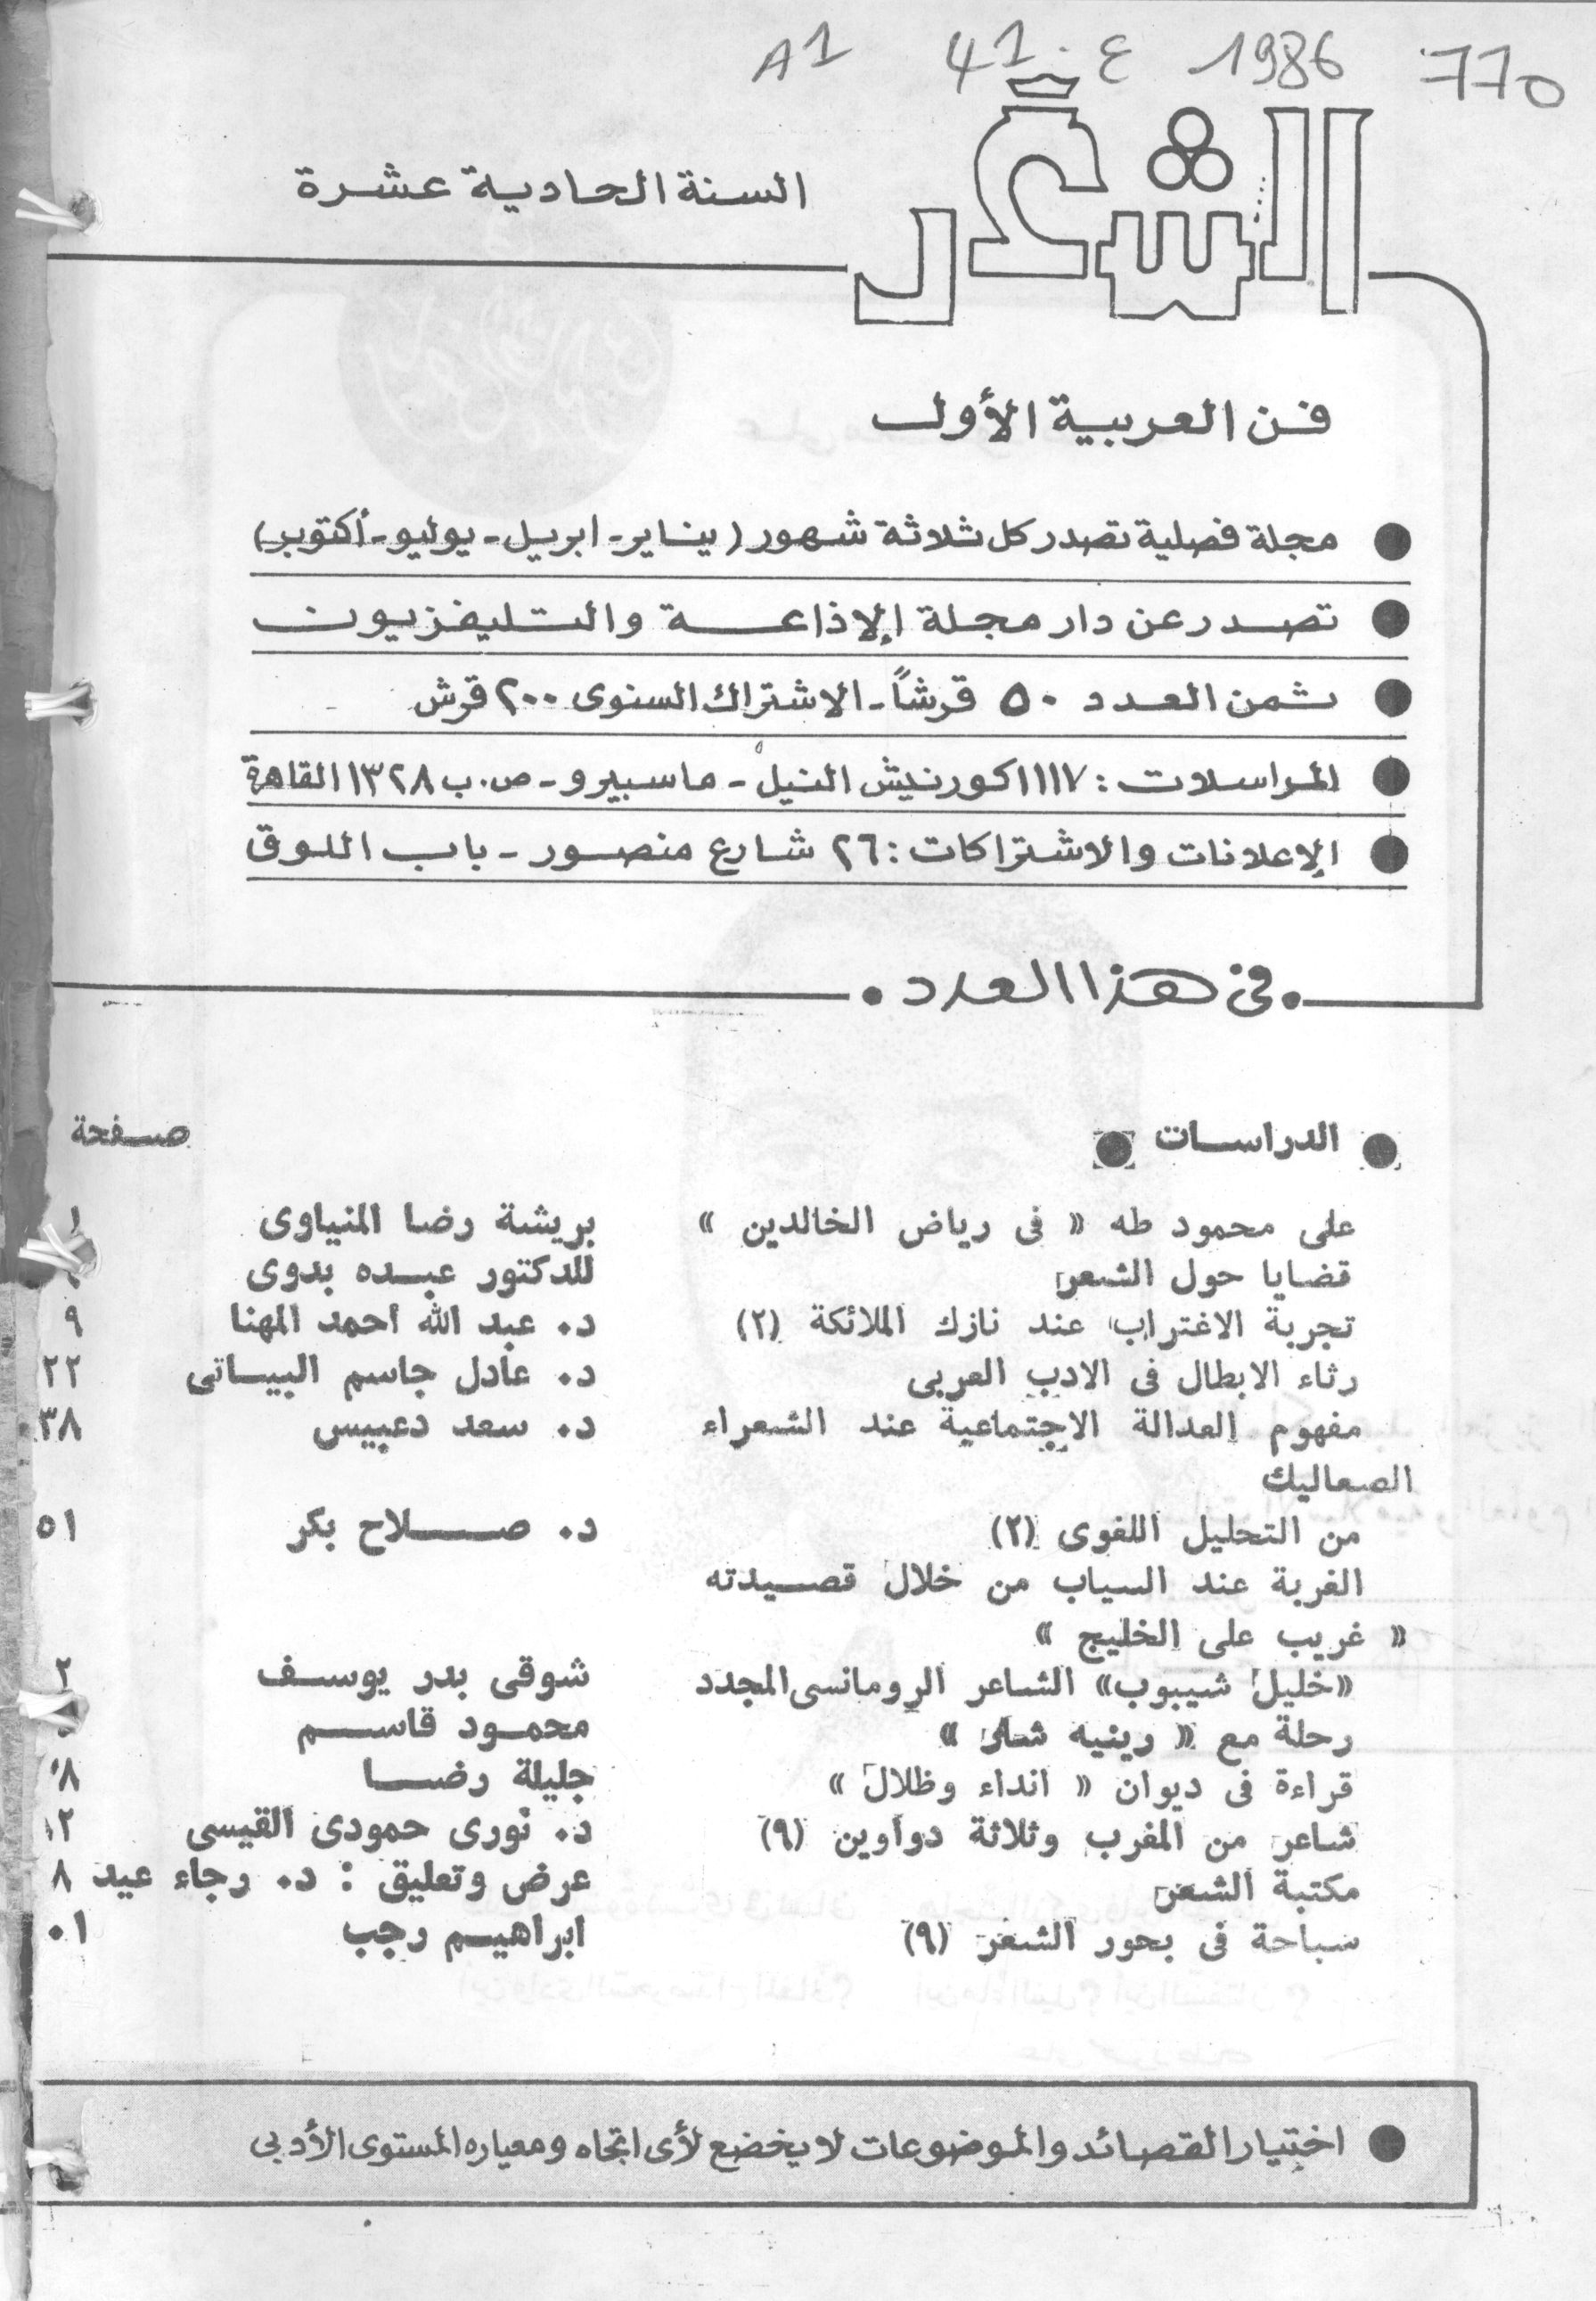 A1 41 ع 1986 770
الشعر
السنة الحادية عشرة
فن العربية الأول
● مجلة فصلية تصدر كل ثلاثة شهور (يناير - ابريل - يوليو - أكتوبر)
● تصدر عن دار مجلة الإذاعة والتليفزيون
● ثمن العدد ٥٠ قرشاً - الاشتراك السنوى ٢٠٠ قرش
● المراسلات : ١١١٧ كورنيش النيل - ماسبيرو - ص . ب ١٣٢٨ القاهرة
● الإعلانات والاشتراكات : ٢٦ شارع منصور - باب اللوق
• فى هذا العدد •
● الدراسات ● صفحة
على محمود طه « فى رياض الخالدين » بريشة رضا المنياوى ١
قضايا حول الشعر للدكتور عبده بدوى
تجربة الاغتراب عند نازك الملائكة (٢) د. عبد الله أحمد المهنا ٩
رثاء الابطال فى الادب العربى د. عادل جاسم البياتى ٢٢
مفهوم العدالة الاجتماعية عند الشعراء د. سعد دعبيس ٣٨
الصعاليك
من التحليل اللغوى (٢) د. صلاح بكر ٥١
الغربة عند السياب من خلال قصيدته
« غريب على الخليج »
«خليل شيبوب» الشاعر الرومانسى المجدد شوقى بدر يوسف ٢
رحلة مع « رينيه شار » محمود قاسم
قراءة فى ديوان « انداء وظلال » جليلة رضا ٨
شاعر من المغرب وثلاثة دواوين (٩) د. نورى حمودى القيسى ٢
مكتبة الشعر عرض وتعليق : د. رجاء عيد ٨
سباحة فى بحور الشعر (٩) ابراهيم رجب ٠١
● اختيار القصائد والموضوعات لا يخضع لأى اتجاه ومعياره المستوى الأدبى